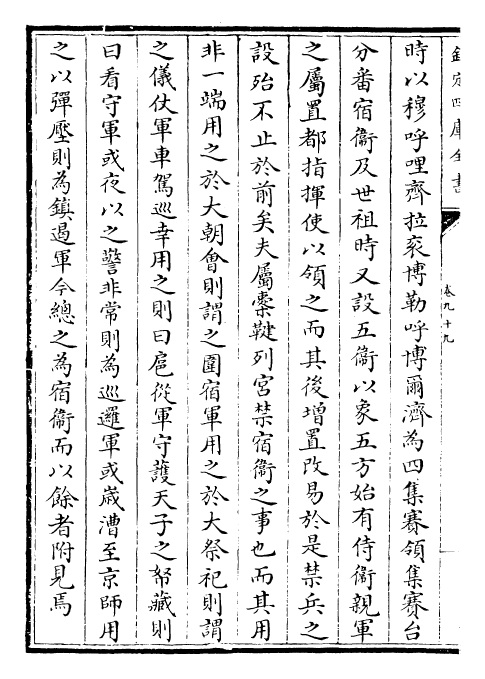 欽定四庫全書
卷九十九
時以穆呼哩齊拉衮博勒呼博爾濟為四集賽領集賽台
分番宿衞及世祖時又設五衞以象五方始有侍衞親軍
之屬置都指揮使以領之而其後增置改易於是禁兵之
設殆不止於前矣夫屬櫜鞬列宮禁宿衞之事也而其用
非一端用之於大朝會則謂之圍宿軍用之於大祭祀則謂
之儀仗軍車駕巡幸用之則曰扈從軍守護天子之帑藏則
曰看守軍或夜以之警非常則為巡邏軍或嵗漕至京師用
之以彈壓則為鎮遏軍今總之為宿衞而以餘者附見焉